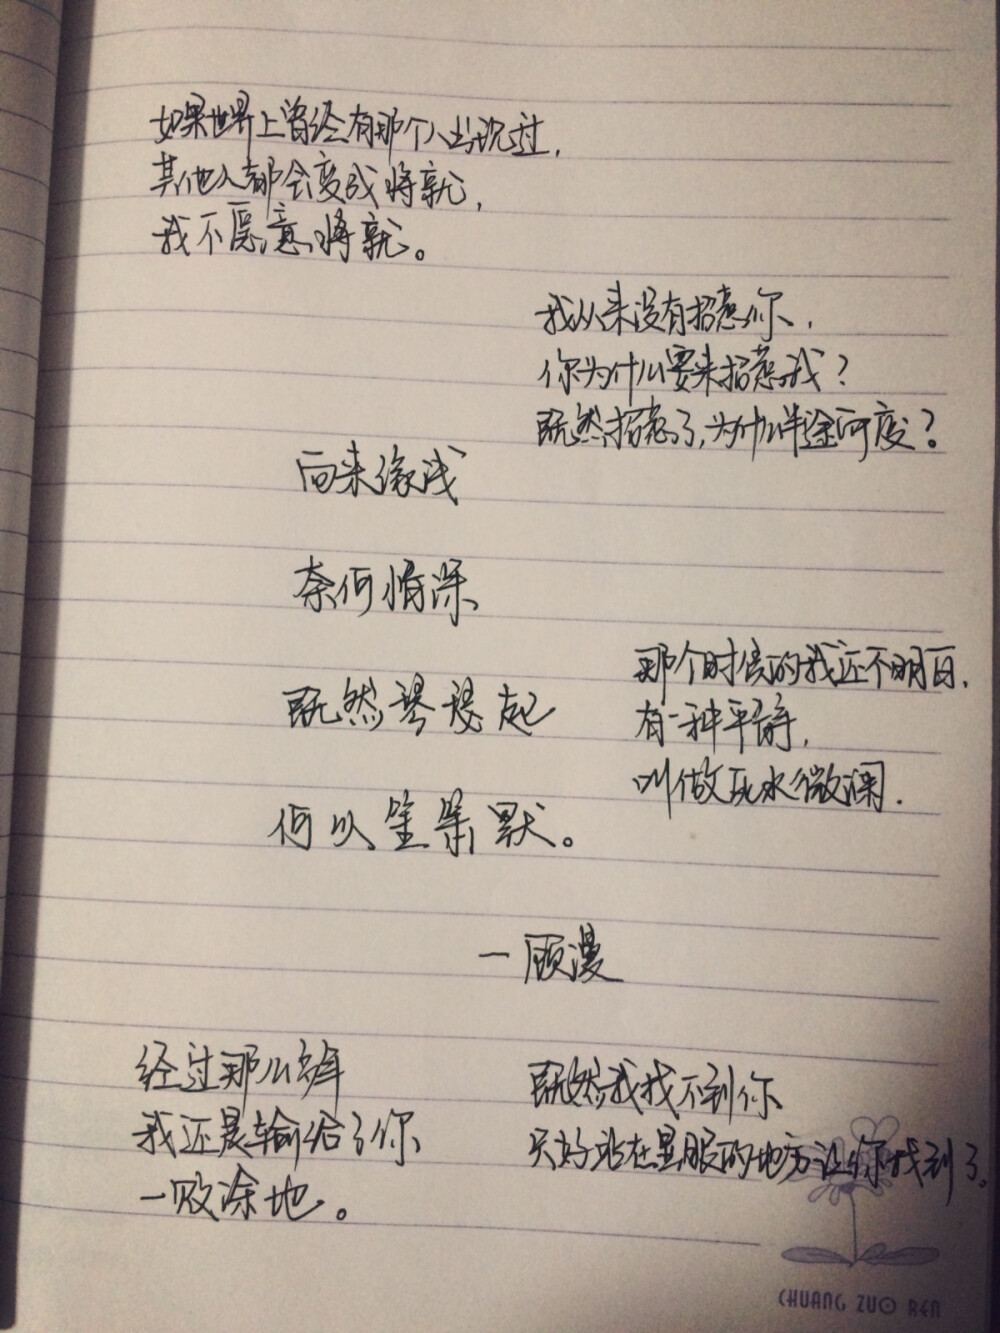 如果世界上曾经有那个人出现过,
其他人都会变成将就,
我不愿意将就。
我从来没有招惹你,
你为什么要来招惹我?
既然招惹了,为什么半途而废?
向来缘浅
奈何情深
既然琴瑟起
何以笙箫默。
那个时候的我还不明白,
有一种平静,
叫做死水微澜.
—顾漫
经过那么多年
我还是输给了你
一败涂地。
既然我找不到你
只好站在显眼的地方让你找到了。
CHUANG ZUO REN